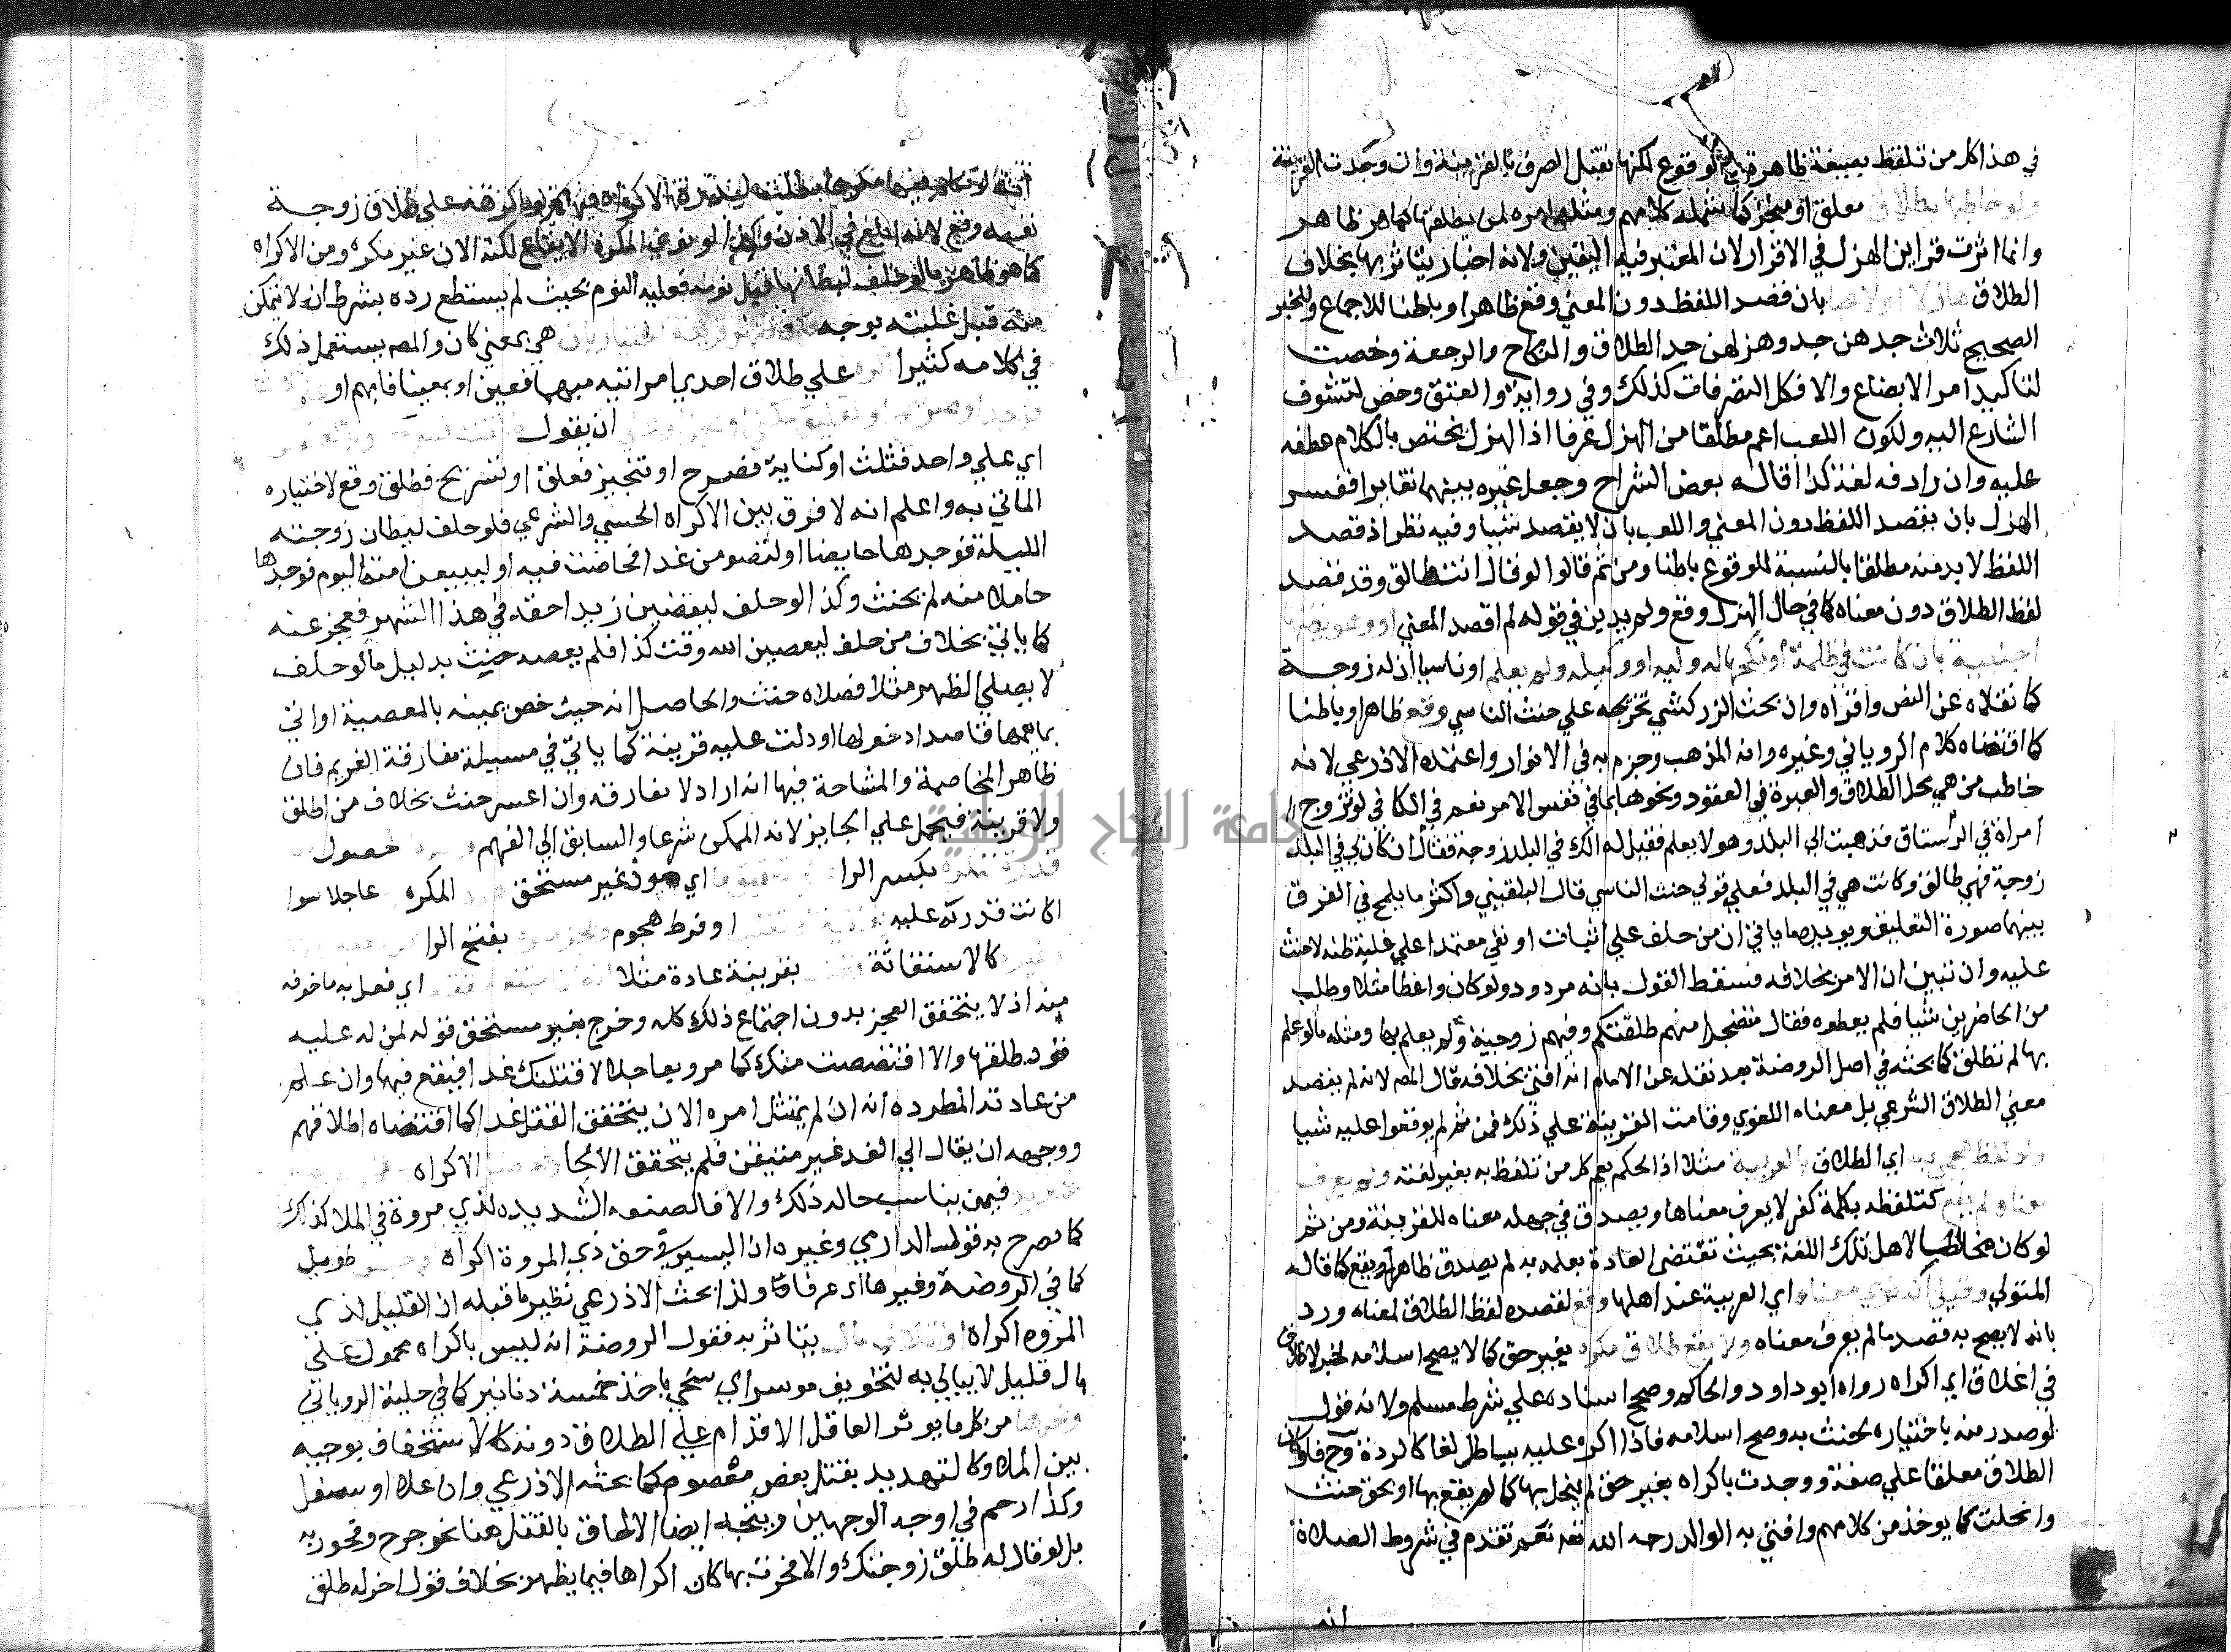 في هذا كل من تلفظ بصيغة ظاهرة في الوقوع لكنها تقبل الصرف بالقرينة وان وجدت القرينة
ولو خاطبها بطلاق معلق او منجز كما شمله كلامهم ومثله امره لمن يطلقها كما هو ظاهر
وانما اثرت قراين الهزل في الاقرار لان المعتبر فيه اليقين ولانه اخبار يتاثر بها بخلاف
الطلاق هازلا او لاعبا بان قصد اللفظ دون المعني وقع ظاهرا وباطنا للاجماع وللخبر
الصحيح ثلاث جدهن جد وهزلهن جد الطلاق والنكاح والرجعة وخصت
لتاكيد امر الابضاع والا فكل التصرفات كذلك وفي رواية والعتق وخص لتشوف
الشارع اليه ولكون اللعب اعم مطلقا من الهزل عرفا اذ الهزل يختص بالكلام عطفه
عليه وان رادفه لغة كذا قاله بعض الشراح وجعل غيره بينهما تغايرا ففسر
الهزل بان يقصد اللفظ دون المعني واللعب بان لا يقصد شيا وفيه نظر اذ قصد
اللفظ لا بد منه مطلقا بالنسبة للوقوع باطنا ومن ثم قالوا لو قال انت طالق وقد قصد
لفظ الطلاق دون معناه كما في حال الهزل وقع ولم يدين في قوله لم اقصد المعني او وهو يظنها
اجنبية بان كانت في ظلمة او نكحها له وليه او وكيله ولم يعلم او ناسيا ان له زوجة
كما نقلاه عن النص واقراه وان بحث الزركشي تخريجه علي حنث الناسي وقع ظاهرا وباطنا
كما اقتضاه كلام الروياني وغيره وانه المذهب وجزم به في الانوار واعتمده الاذرعي لانه
خاطب من هي محل الطلاق والعبرة في العقود ونحوها بما في نفس الامر نعم في الكافي لو تزوج
امراة في الرستاق فذهبت الي البلد وهو لا يعلم فقيل له الك في البلد زوجة فقال ان كان لي في البلد
زوجة فهي طالق وكانت هي في البلد فعلي قولي حنث الناسي قال البلقيني واكثر ما يلمح في الفرق
بينهما صورة التعليق ويويدهما ياتي ان من حلف علي اثبات او نفي معتمدا علي غلبة ظنه لا حنث
عليه وان تبين ان الامر بخلافه فسقط القول بانه مردود ولو كان واعظا مثلا وطلب
من الحاضرين شيا فلم يعطوه فقال متضجرا منهم طلقتكم وفيهم زوجته ولم يعلم بها ومثله ما لو علم
بها لم تطلق كما بحثه في اصل الروضة بعد نقله عن الامام انه افتي بخلافه قال المص لانه لم يقصد
معني الطلاق الشرعي بل معناه اللغوي وقامت القرينة علي ذلك فمن ثم لم يوقعوا عليه شيا
ولو لفظ عجمي به اي الطلاق بالعربية مثلا اذ الحكم يعم كل من تلفظ به بغير لغته ولم يعرف
معناه لم يقع كتلفظه بكلمة كفر لا يعرف معناها ويصدق في جهله معناه للقرينة ومن ثم
لو كان مخالطا لاهل تلك اللغة بحيث تقتضي العادة بعلمه به لم يصدق ظاهرا ويقع كما قاله
المتولي وقيل ان نوي معناه اي العربية عند اهلها وقع لقصده لفظ الطلاق لمعناه ورد
بانه لا يصح به قصد ما لم يعرف معناه ولا يقع طلاق مكره بغير حق كما لا يصح اسلامه لخبر لا طلاق
في اغلاق اي اكراه رواه ابو داود والحاكم وصحح اسناده علي شرط مسلم ولانه قول
لو صدر منه باختياره بحنث به وصح اسلامه فاذا اكره عليه بباطل لغا كالردة وح فلو كان
الطلاق معلقا علي صفة ووجدت باكراه بغير حق لم ينحل بها كما لم يقع بها او بحق حنث
وانحلت كما يوخذ من كلامهم وافتي به الوالد رحمه الله نعم تقدم في شروط الصلاة
انه
انه لو تكلم فيها مكرها بطلت لندرة الاكراه فيها ولو اكرهه علي طلاق زوجة
نفسه وقع لانه ابلغ في الاذن وكذا لو نوي المكره الايقاع لكنه الان غير مكره ومن الاكراه
كما هو ظاهر ما لو حلف ليطانها قبل نومه فغلبه النوم بحيث لم يستطع رده بشرط ان لا يتمكن
منه قبل غلبته بوجه هي بمعني كان والمص يستعمل ذلك
في كلامه كثيرا علي طلاق احدي امراتيه مبهما فعين او معينا فابهم او
ان يقول
اي علي واحد فثلث او كناية فصرح او تنجيز فعلق او تسريح فطلق وقع لاختياره
الماتي به واعلم انه لا فرق بين الاكراه الحسي والشرعي فلو حلف ليطان زوجته
الليلة فوجدها حايضا او لتصومن غدا فحاضت فيه او ليبيعن امته اليوم فوجدها
حاملا منه لم يحنث وكذا لو حلف ليقضين زيدا حقه في هذا الشهر فعجز عنه
كما ياتي بخلاف من حلف ليعصين الله وقت كذا فلم يعصه حنث بدليل ما لو حلف
لا يصلي الظهر مثلا فصلاه حنث والحاصل انه حيث خص يمينه بالمعصية او اتي
بما يعمها قاصدا دخولها او دلت عليه قرينة كما ياتي في مسيلة مفارقة الغريم فان
ظاهر المخاصمة والمشاحة فيها انه اراد لا يفارقه وان اعسر حنث بخلاف من اطلق
ولا قرينة فيحمل علي الجايز لانه الممكن شرعا والسابق الي الفهم حصول
قدرة المكره بكسر الرا اي بغير مستحق المكره عاجلا سوا
اكانت قدرته عليه او فرط هجوم بفتح الرا
كالاستغاثة بقرينة عادة مثلا اي فعل به ما خوفه
منه اذ لا يتحقق العجز بدون اجتماع ذلك كله وخرج بغير مستحق قوله لمن له عليه
قود طلقها والا اقتصصت منك كما مر وبعاجلا لاقتلنك غدا فيقع فيهما وان علم
من عادته المطرده انه ان لم يمتثل امره الان يتحقق القتل غدا كما اقتضاه اطلاقهم
ووجهه ان يقال الي الغد غير متيقن فلم يتحقق الالجا الاكراه
فيمن يناسب حاله ذلك والا فالصفعه الشديده لذي مروة في الملا كذلك
كما يصرح به قول الدارمي وغيره ان اليسير في حق ذي المروة اكراه طويل
كما في الروضة وغيرها اي عرفا ولذا بحث الاذرعي نظير ما قبله ان القليل لذي
المروه اكراه او اتلاف مال يتاثر به فقول الروضة انه ليس باكراه محمول علي
مال قليل لا يبالي به كتخويف موسر اي سخي باخذ خمسة دنانير كما في حلية الروياني
ونحوها من كل ما يوثر العاقل الاقدام علي الطلاق دونه كالاستخفاف بوجيه
بين الملا وكالتهديد بقتل بعض معصوم كما بحثه الاذرعي وان علا او سفل
وكذا رحم في اوجه الوجهين ويتجه ايضا الالحاق بالقتل هنا نحو جرح وفجور به
بل لو قال له طلق زوجتك والا فجرت بها كان اكراها فيما يظهر بخلاف قول اخر له طلق
جامعة النجاح الوطنية